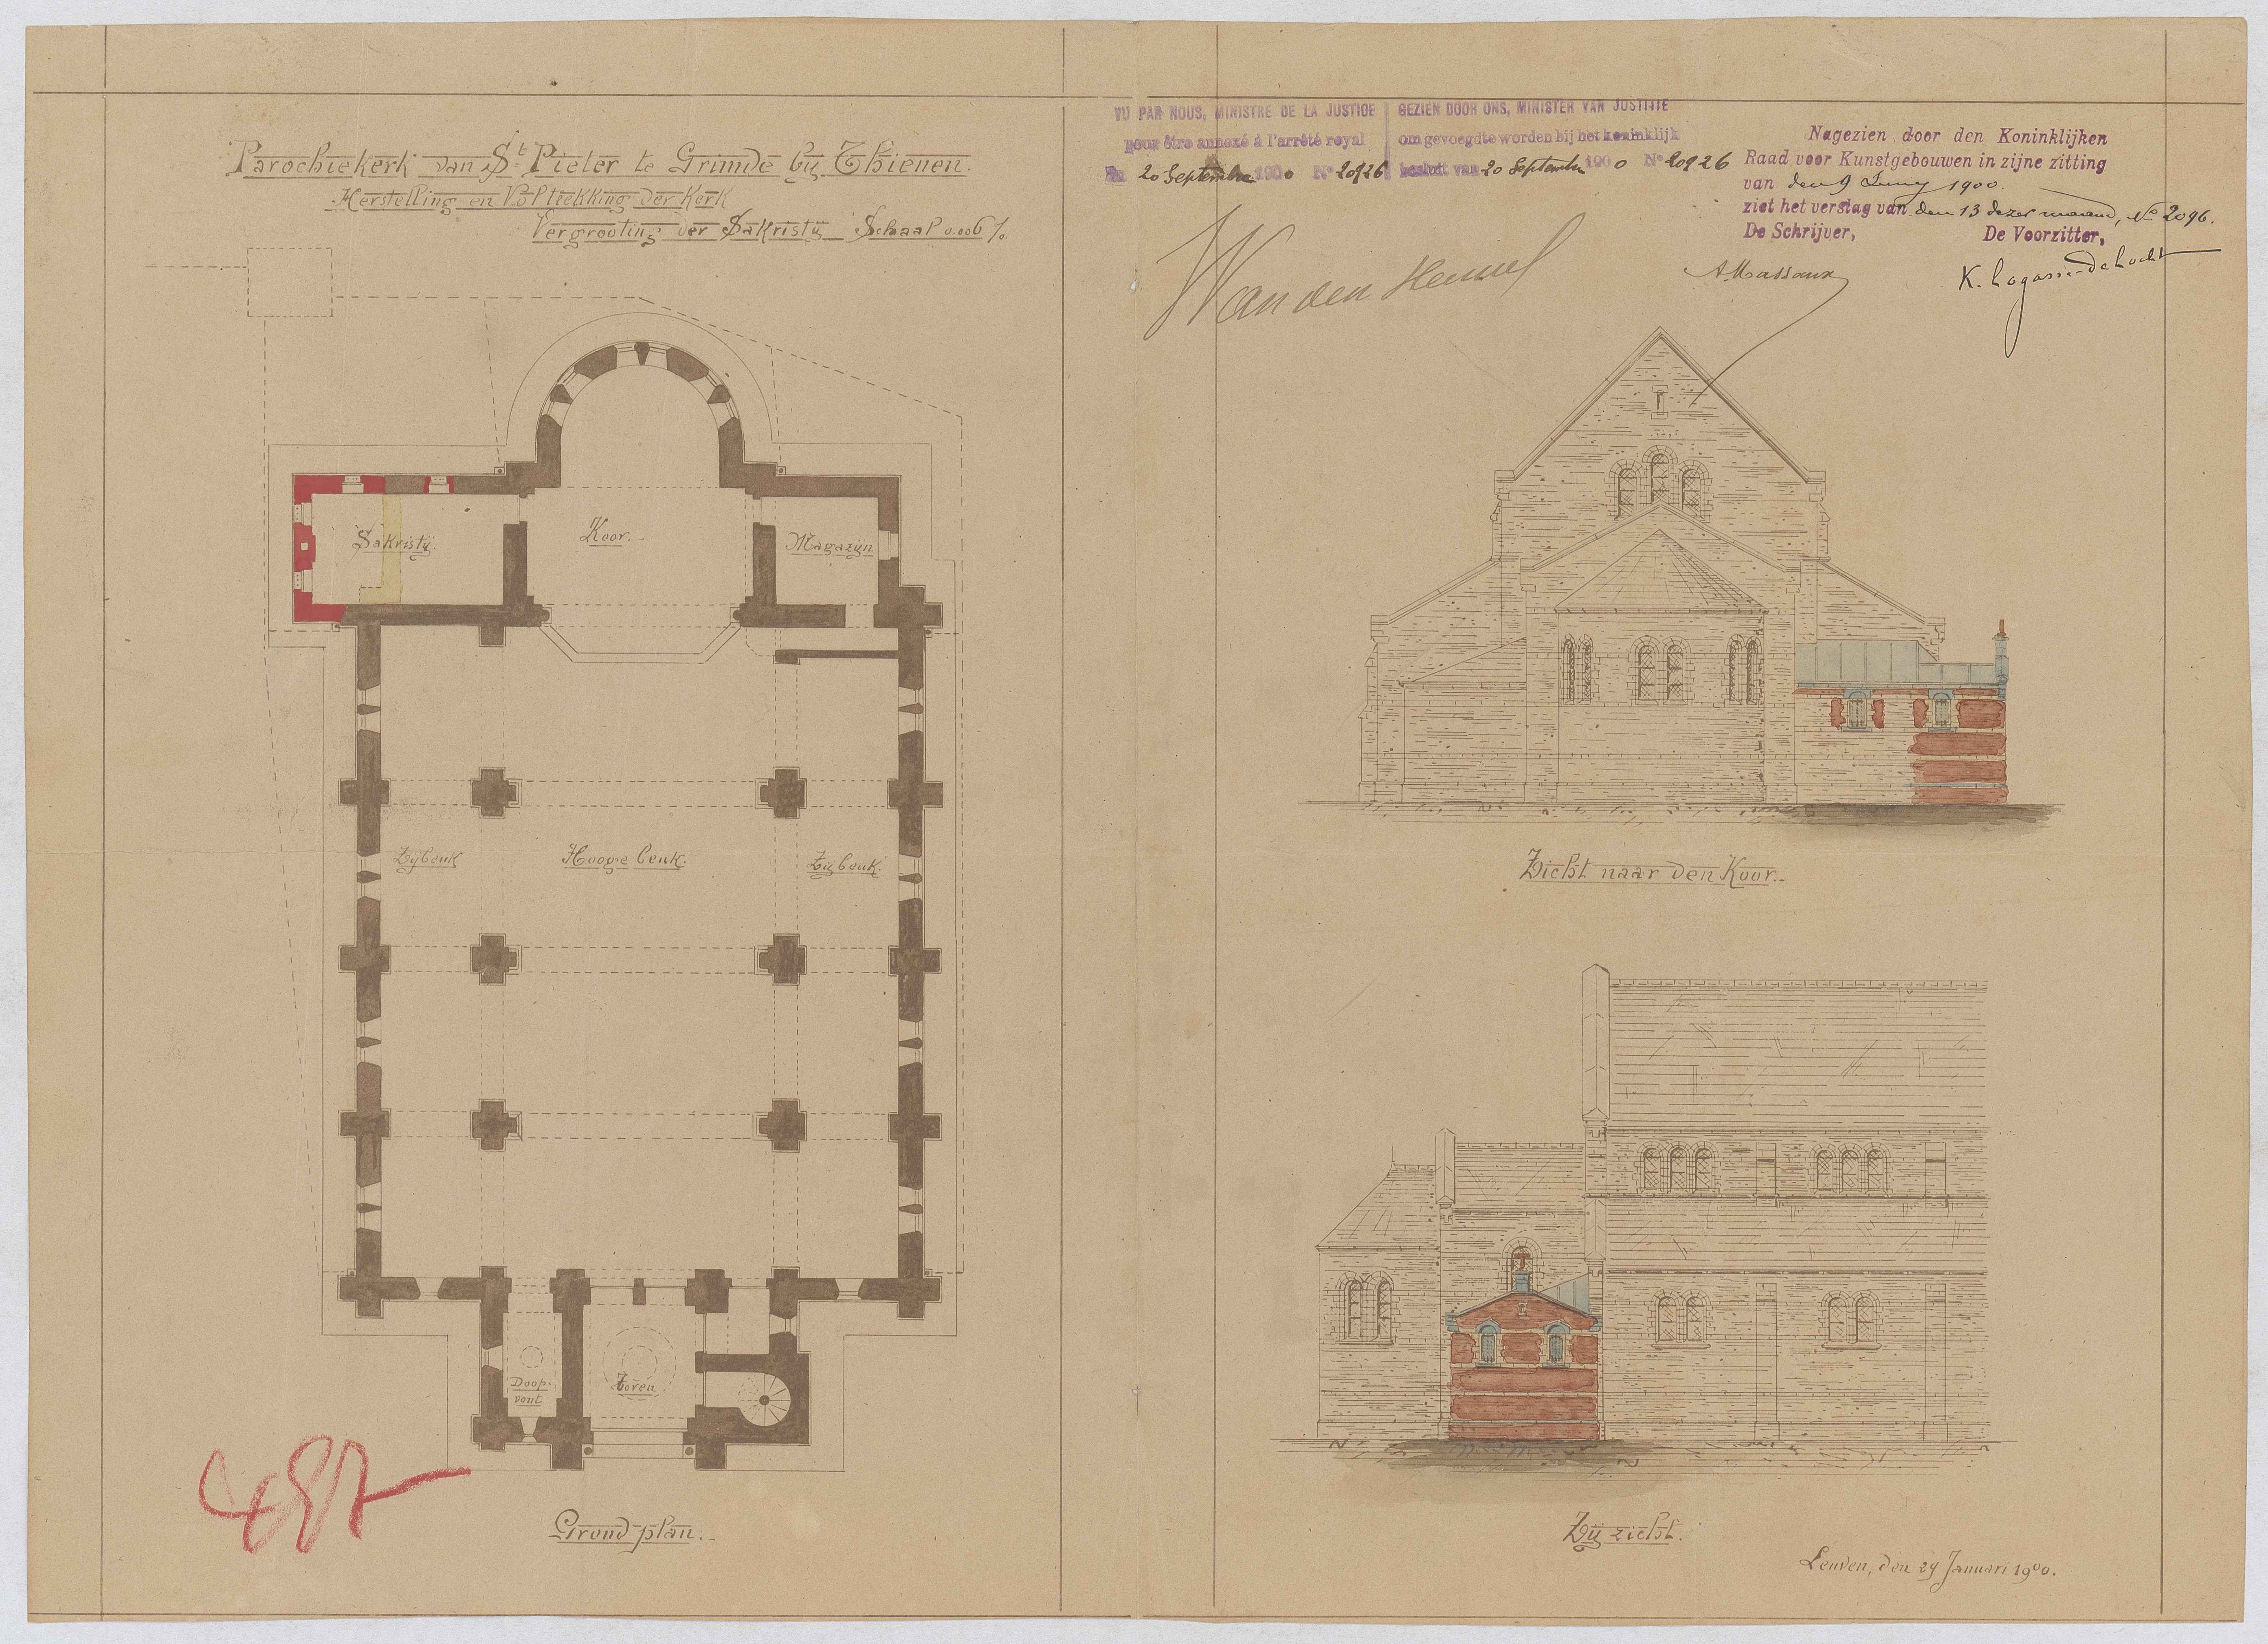 Parochiekerk van St Pieter te Grimde bij Thienen.
Herstelling en Voltrekking der Kerk
Vergrooting der Sakristij Schaal 0.006 %.
VU PAR NOUS, MINISTRE DE LA JUSTICE
pour être annexé à l'arrêté royal
du 20 Septembre 1900 No 20926
GEZIEN DOOR ONS, MINISTER VAN JUSTITIE
om gevoegd te worden bij het koninklijk
besluit van 20 September 1900 No 20926
Nagezien door den Koninklijken
Raad voor Kunstgebouwen in zijne zitting
van den 9 Juny 1900.
ziet het verslag van den 13 dezer maand, No 2096.
De Schrijver, De Voorzitter,
A. Massaux
K. Lagasse-de Locht
Sakristij
Koor.
Magazijn
Zijbeuk
Hooge beuk.
Zijbeuk.
Doop-
vont
Toren
Grondplan.
Zicht naar den Koor.
Zijzicht.
Leuven, den 29 Januari 1900.